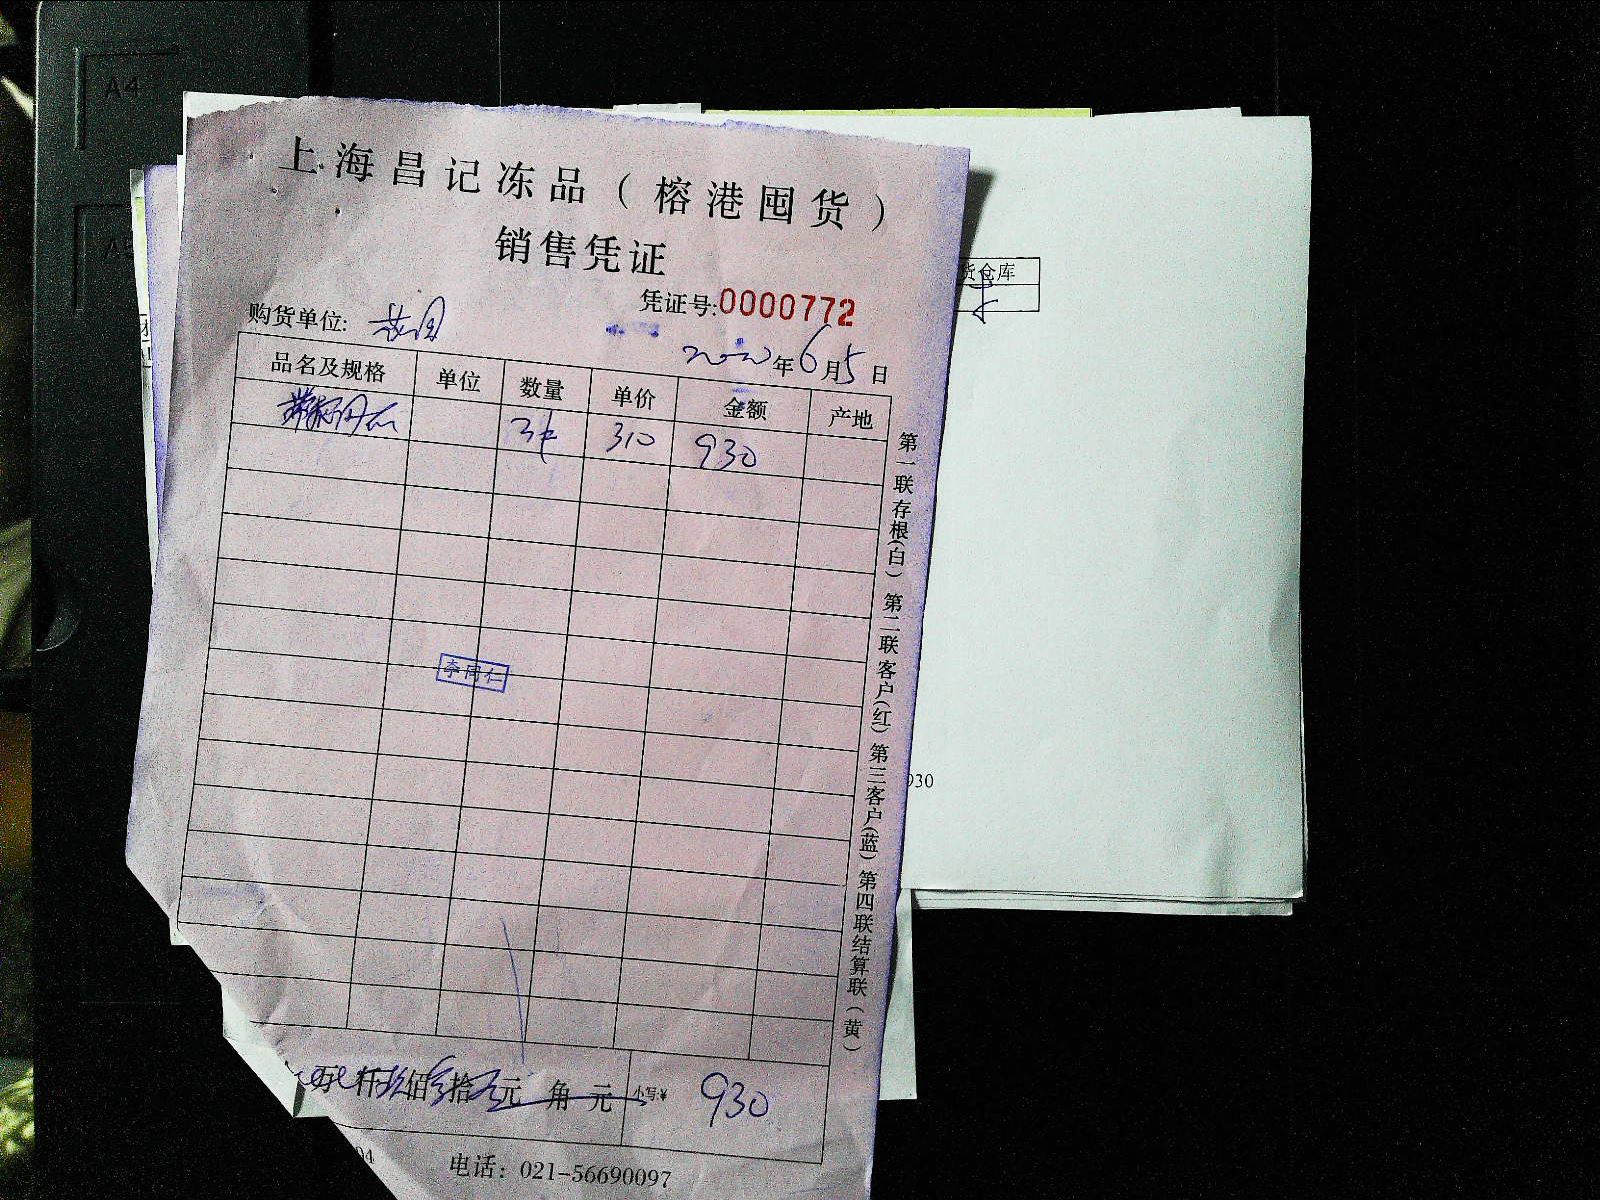 A4
A5
上海昌记冻品（榕港囤货）
销售凭证
凭证号:0000772
购货单位:
年6月5日
品名及规格 单位 数量 单价 金额 产地
3 310 930
李同仁
第一联存根(白) 第二联客户(红) 第三客户(蓝) 第四联结算联(黄)
万 仟玖佰叁拾元 角 元 小写:¥ 930
04
电话：021-56690097
货仓库
930